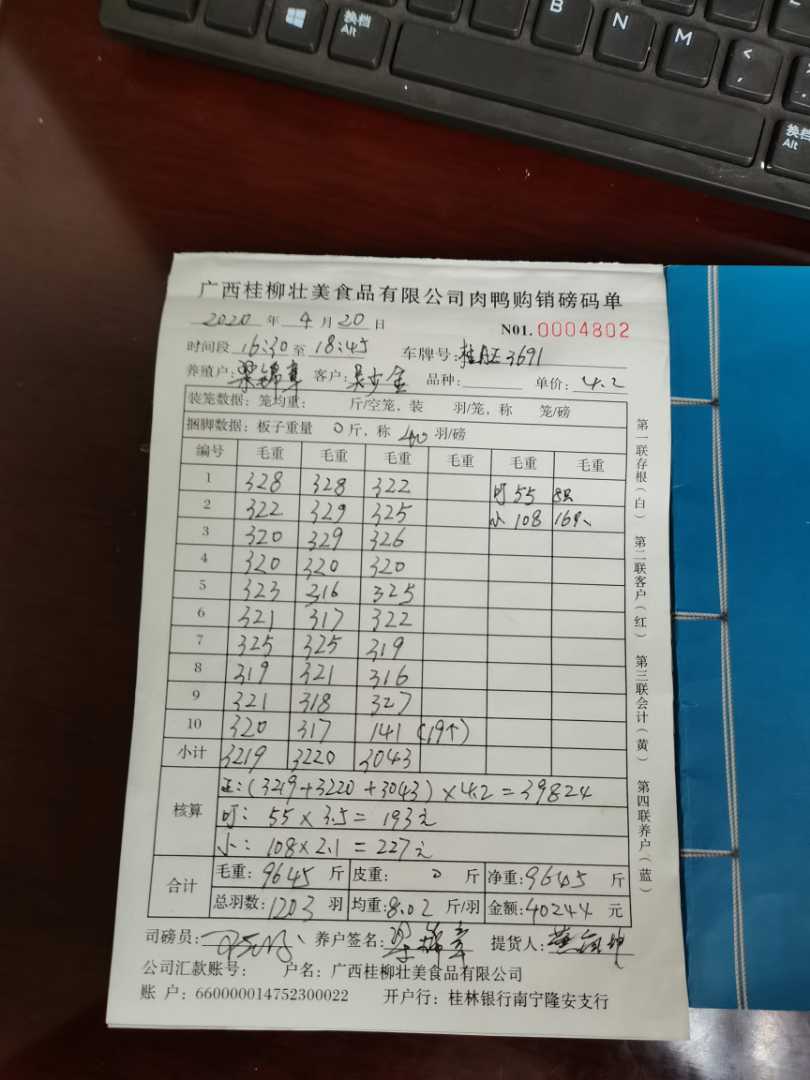 换档
Alt
B
N
M
<
,
换档
Alt
广西桂柳壮美食品有限公司肉鸭购销磅码单
2020 年 4 月 20 日
N01. 0004802
时间段 16:30 至 18:45 车牌号: 3691
养殖户: 梁锦章 客户: 吴步金 品种: 单价: 4.2
装笼数据: 笼均重: 斤/空笼, 装 羽/笼, 称 笼/磅
捆脚数据: 板子重量 0 斤, 称 40 羽/磅
编号 毛重 毛重 毛重 毛重 毛重 毛重
1 328 328 322 叮 55 8只
2 322 329 325 小 108 16只
3 320 329 326
4 320 320 320
5 323 316 325
6 321 317 322
7 325 325 319
8 319 321 316
9 321 318 327
10 320 317 141 (19个)
小计 3219 3220 3043
核算
正: (3219+3220+3043)×4.2=39824
叮: 55×3.5=193元
小: 108×2.1=227元
合计
毛重: 9645 斤 皮重: 0 斤 净重: 9645 斤
总羽数: 1203 羽 均重: 8.02 斤/羽 金额: 40244 元
司磅员: 养户签名: 梁锦章 提货人:
公司汇款账号: 户名: 广西桂柳壮美食品有限公司
账 户: 660000014752300022 开户行: 桂林银行南宁隆安支行
第一联存根(白) 第二联客户(红) 第三联会计(黄) 第四联养户(蓝)